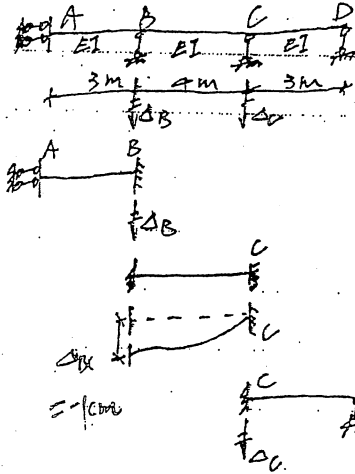 A B C D
EI EI EI
3m 4m 3m
ΔB ΔC
A B
ΔB
C
C
ΔBC
C
ΔC